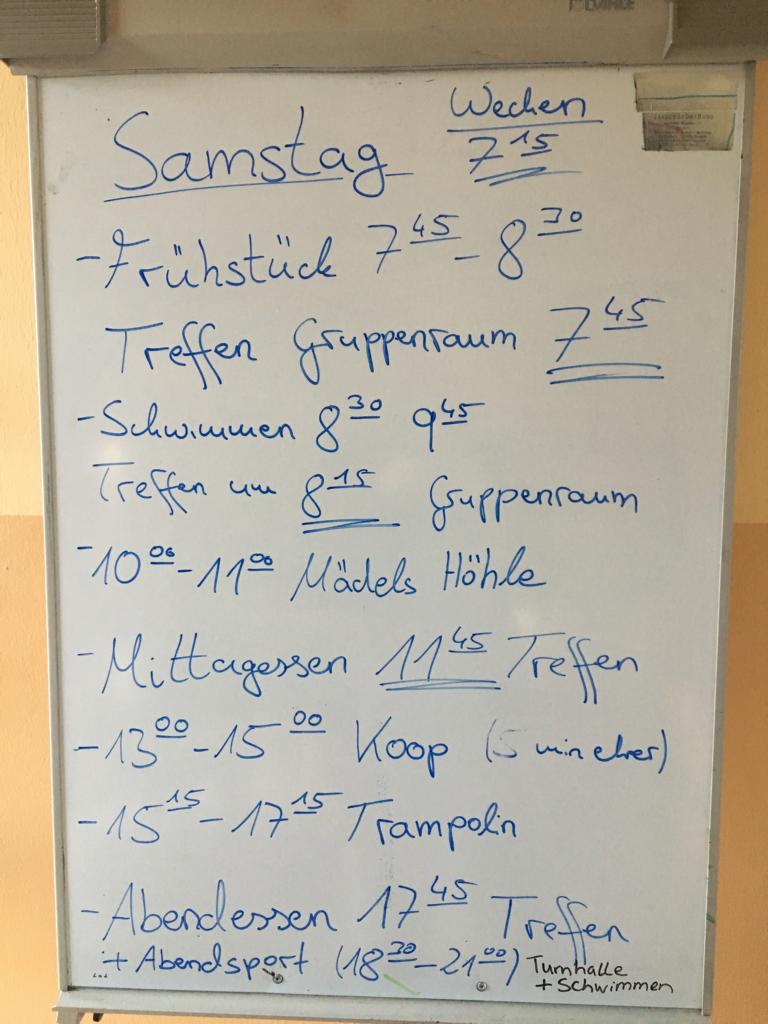 DAHLE
Wecken
Samstag 7 15
- Frühstück 7 45 - 8 30
Treffen Gruppenraum 7 45
- Schwimmen 8 30 9 45
Treffen um 8 15 Gruppenraum
- 10 00 - 11 00 Mädels Höhle
- Mittagessen 11 45 Treffen
- 13 00 - 15 00 Koop (5 min eher)
- 15 15 - 17 15 Trampolin
- Abendessen 17 45 Treffen
... + Abendsport (18 30 - 21 00) Turnhalle
+ Schwimmen